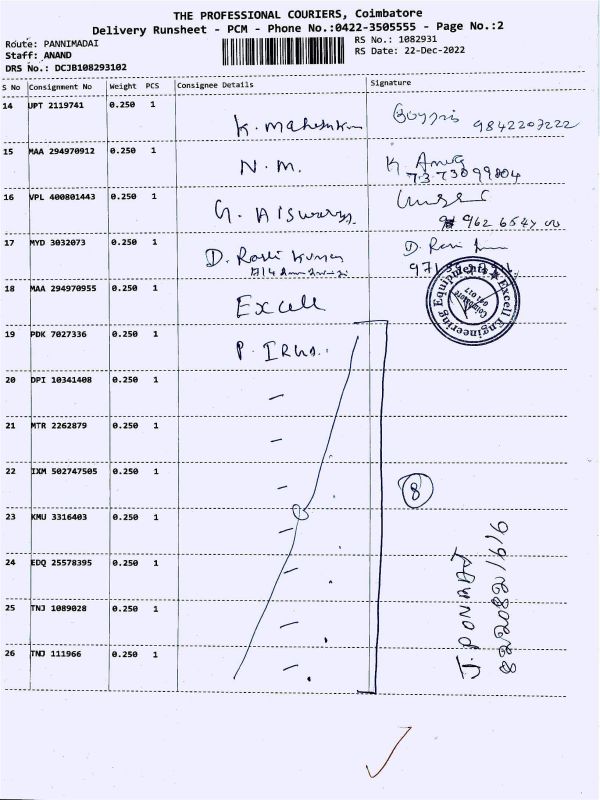 THE PROFESSIONAL COURIERS, Coimbatore
Delivery Runsheet - PCM - Phone No.:0422-3505555 - Page No.:2
Route: PANNIMADAI
Staff: ANAND
DRS No.: DCJB108293102
RS No.: 1082931
RS Date: 22-Dec-2022
S No Consignment No Weight PCS Consignee Details Signature
14 UPT 2119741 0.250 1 K. Maheshkum 9842207222
15 MAA 294970912 0.250 1 N. M. K. 7373099804
16 VPL 400801443 0.250 1 G. AISwarya
17 MYD 3032073 0.250 1 D. Ravi Kumar D. Ravi
18 MAA 294970955 0.250 1 Excell
Excell Engineering Equipments
Coimbatore
641 017
19 PDK 7027336 0.250 1 P.
20 DPI 10341408 0.250 1 -
21 MTR 2262879 0.250 1 -
22 IXM 502747505 0.250 1 -
8
23 KMU 3316403 0.250 1 -
24 EDQ 25578395 0.250 1 -
25 TNJ 1089028 0.250 1 -
26 TNJ 111966 0.250 1 -